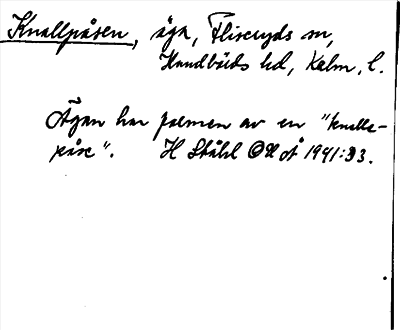 Knallpåsen, äga, Fliseryds sn,
Handbörds hd, Kalm. l.
Ägan har formen av en "knalle-
påse". H Ståhl OUÅ 1941:33.